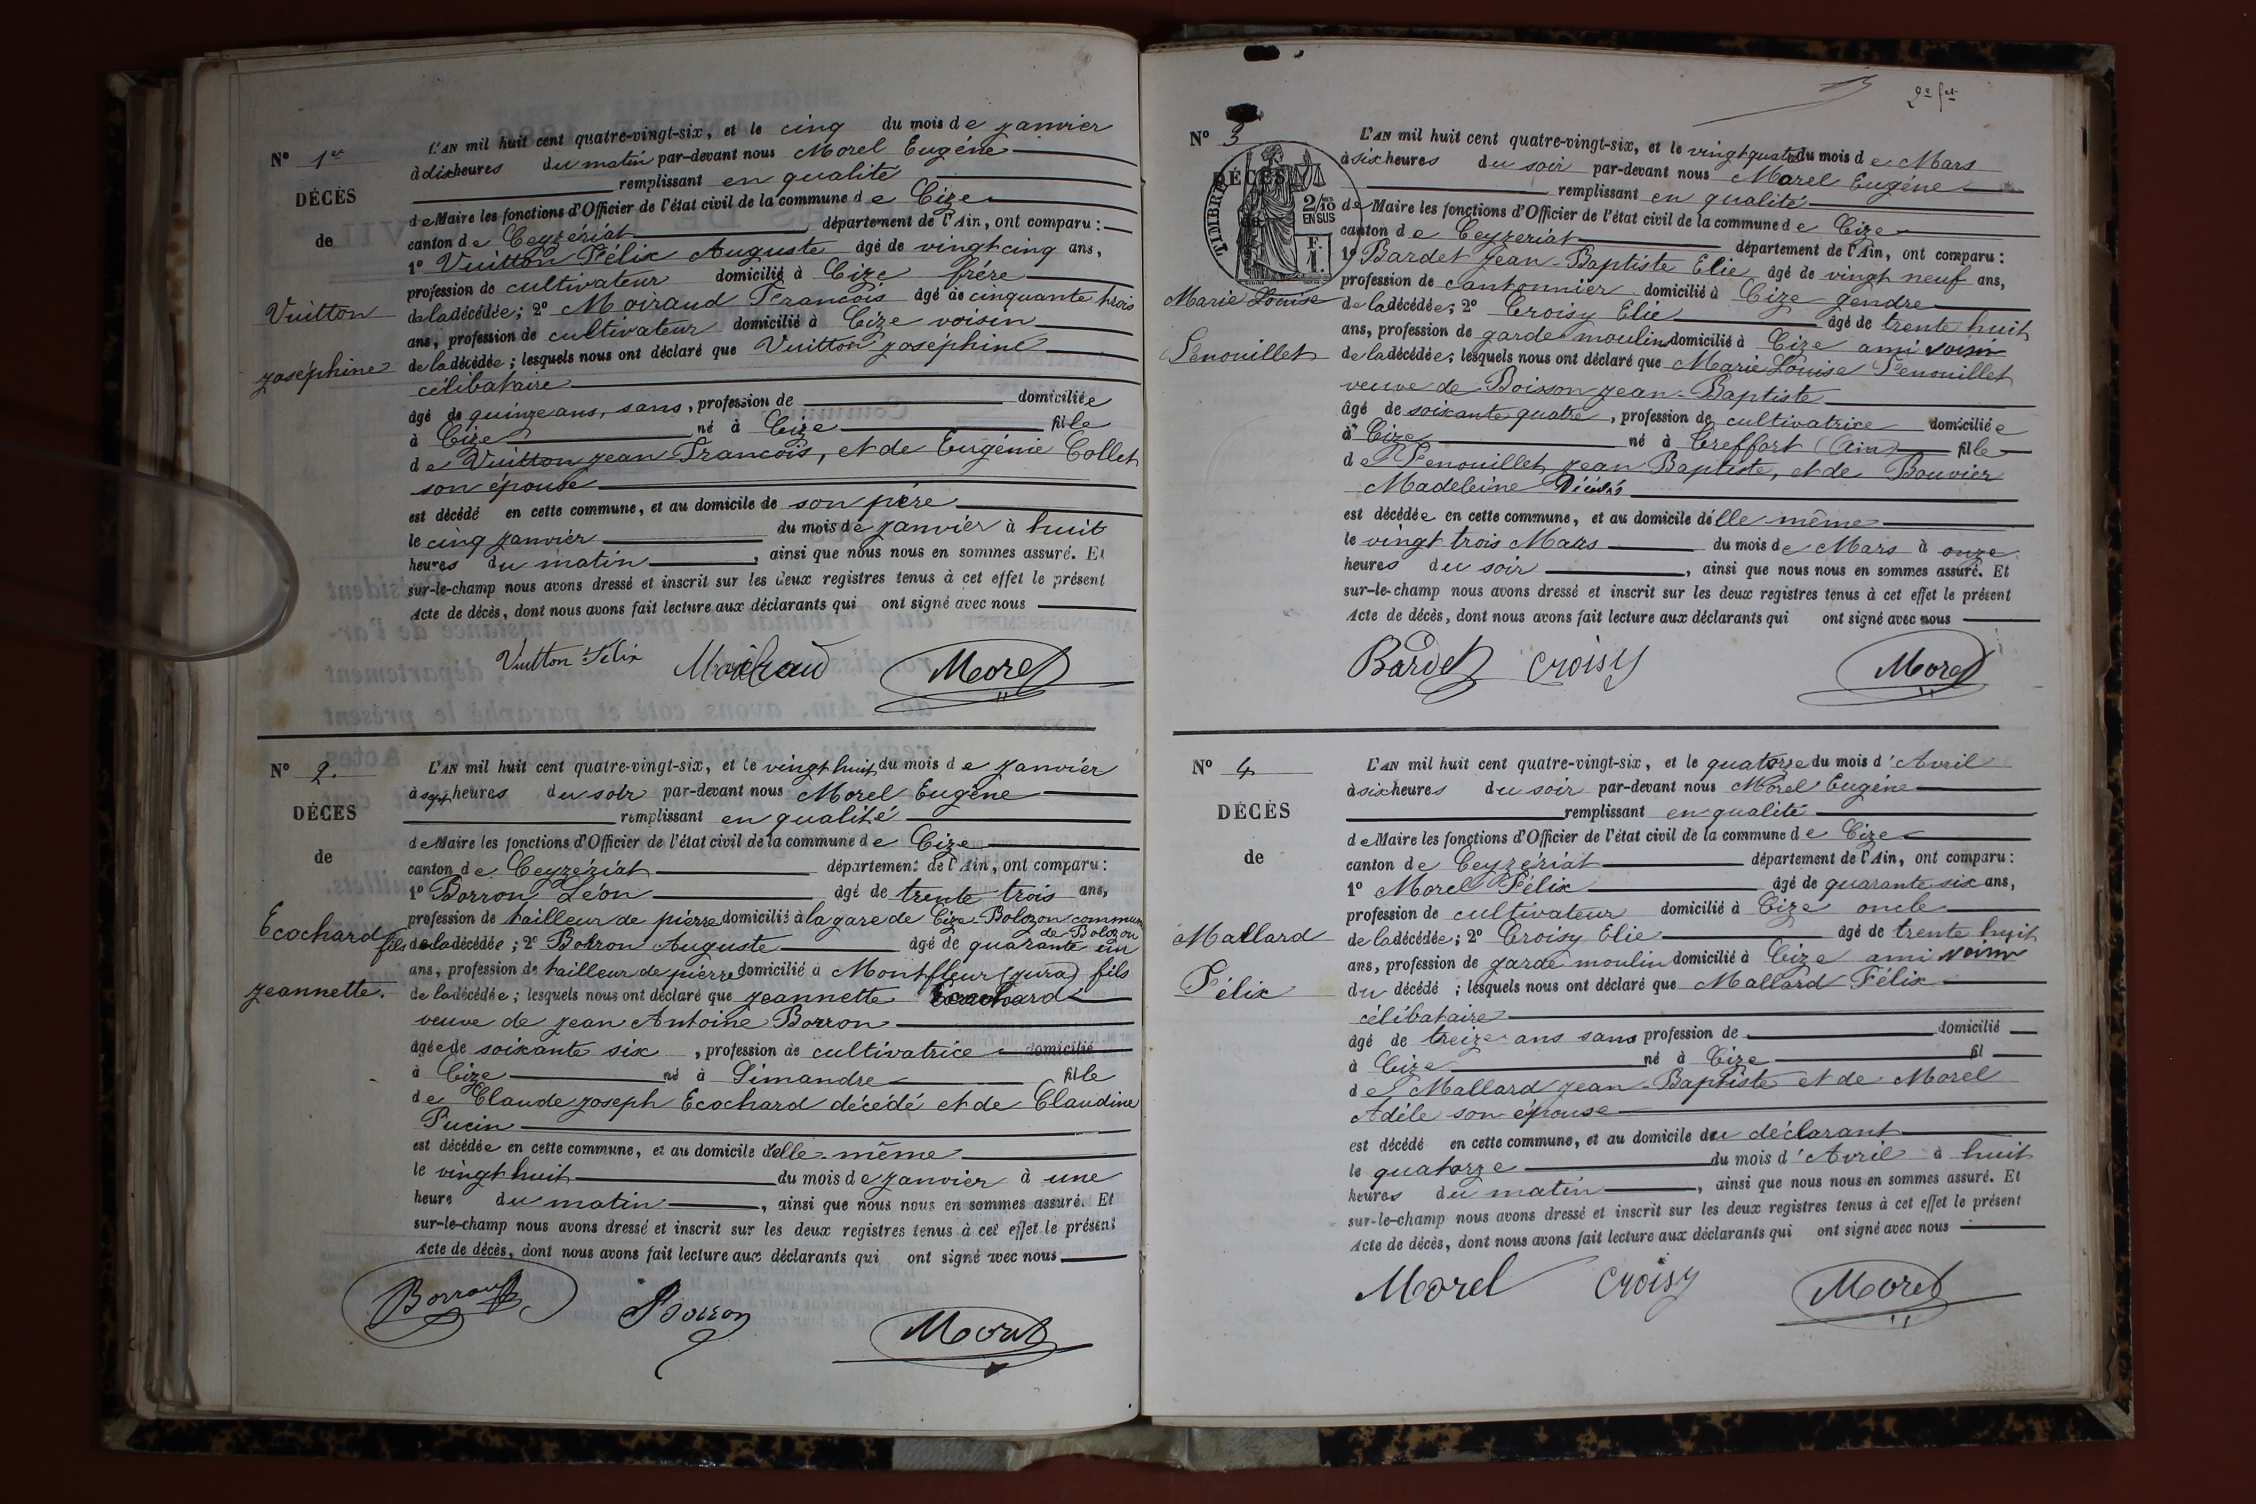 N° 1er
DÉCÈS
de
Vuitton
Joséphine
L'AN mil huit cent quatre-vingt-six, et le cinq du mois de Janvier
à dix heures du matin par-devant nous Morel Eugène
remplissant en qualité
de Maire les fonctions d'Officier de l'état civil de la commune de Cize
canton de Ceyzériat département de l'Ain, ont comparu :
1° Vuitton Félix Auguste âgé de vingt cinq ans,
profession de cultivateur domicilié à Cize frère
de la décédée ; 2° Moiraud Francois âgé de cinquante trois
ans, profession de cultivateur domicilié à Cize voisin
de la décédée ; lesquels nous ont déclaré que Vuitton Joséphine
célibataire
âgé de quinze ans, sans, profession de domiciliée
à Cize né à Cize fille
de Vuitton Jean Francois, et de Eugénie Collet
son épouse
est décédé en cette commune, et au domicile de son père
le cinq Janvier du mois de Janvier à huit
heures du matin, ainsi que nous nous en sommes assuré. Et
sur-le-champ nous avons dressé et inscrit sur les deux registres tenus à cet effet le présent
Acte de décès, dont nous avons fait lecture aux déclarants qui ont signé avec nous
Vuitton Félix Moiraud Morel
N° 2.
DÉCÈS
de
Ecochard
Jeannette.
L'AN mil huit cent quatre-vingt-six, et le vingt huit du mois de Janvier
à sept heures du soir par-devant nous Morel Eugène
remplissant en qualité
de Maire les fonctions d'Officier de l'état civil de la commune de Cize
canton de Ceyzériat département de l'Ain, ont comparu :
1° Borron Léon âgé de trente trois ans,
profession de tailleur de pierre domicilié à la gare de Cize-Bolozon commune
de Bolozon
fils de la décédée ; 2° Borron Auguste âgé de quarante un
ans, profession de tailleur de pierre domicilié à Montfleur (Jura) fils
de la décédée ; lesquels nous ont déclaré que Jeannette Ecochard
veuve de Jean Antoine Borron
âgée de soixante six, profession de cultivatrice domicilié
à Cize né à Simandre fille
de Claude Joseph Ecochard décédé et de Claudine
Pucin
est décédée en cette commune, et au domicile d'elle-même
le vingt huit du mois de Janvier à une
heure du matin, ainsi que nous nous en sommes assuré. Et
sur-le-champ nous avons dressé et inscrit sur les deux registres tenus à cet effet le présent
Acte de décès, dont nous avons fait lecture aux déclarants qui ont signé avec nous
Borron Borron Morel
2e ft
N° 3
DÉCÈS
TIMBRE
2/10 EN SUS
F. 1.
Marie Louise
Penouillet
L'AN mil huit cent quatre-vingt-six, et le vingt quatre du mois de Mars
à six heures du soir par-devant nous Morel Eugène
remplissant en qualité
de Maire les fonctions d'Officier de l'état civil de la commune de Cize
canton de Ceyzeriat département de l'Ain, ont comparu :
1° Bardet Jean-Baptiste Elie âgé de vingt neuf ans,
profession de cantonnier domicilié à Cize gendre
de la décédée ; 2° Croisy Elie âgé de trente huit
ans, profession de garde moulin domicilié à Cize ami voisin
de la décédée ; lesquels nous ont déclaré que Marie Louise Penouillet
veuve de Boisson Jean-Baptiste
âgé de soixante quatre, profession de cultivatrice domiciliée
à Cize né à Treffort (Ain) fille
de Penouillet Jean Baptiste, et de Bouvier
Madeleine Décédés
est décédée en cette commune, et au domicile d'elle même
le vingt trois Mars du mois de Mars à onze
heures du soir, ainsi que nous nous en sommes assuré. Et
sur-le-champ nous avons dressé et inscrit sur les deux registres tenus à cet effet le présent
Acte de décès, dont nous avons fait lecture aux déclarants qui ont signé avec nous
Bardet Croisy Morel
N° 4
DÉCÈS
de
Mallard
Félix
L'AN mil huit cent quatre-vingt-six, et le quatorze du mois d'Avril
à six heures du soir par-devant nous Morel Eugène
remplissant en qualité
de Maire les fonctions d'Officier de l'état civil de la commune de Cize
canton de Ceyzériat département de l'Ain, ont comparu :
1° Morel Félix âgé de quarante six ans,
profession de cultivateur domicilié à Cize oncle
de la décédée ; 2° Croisy Elie âgé de trente huit
ans, profession de garde moulin domicilié à Cize ami voisin
du décédé ; lesquels nous ont déclaré que Mallard Félix
célibataire
âgé de treize ans sans profession de domicilié
à Cize né à Cize fil
de Mallard Jean-Baptiste et de Morel
Adèle son épouse
est décédé en cette commune, et au domicile du déclarant
le quatorze du mois d'Avril à huit
heures du matin, ainsi que nous nous en sommes assuré. Et
sur-le-champ nous avons dressé et inscrit sur les deux registres tenus à cet effet le présent
Acte de décès, dont nous avons fait lecture aux déclarants qui ont signé avec nous
Morel Croisy Morel